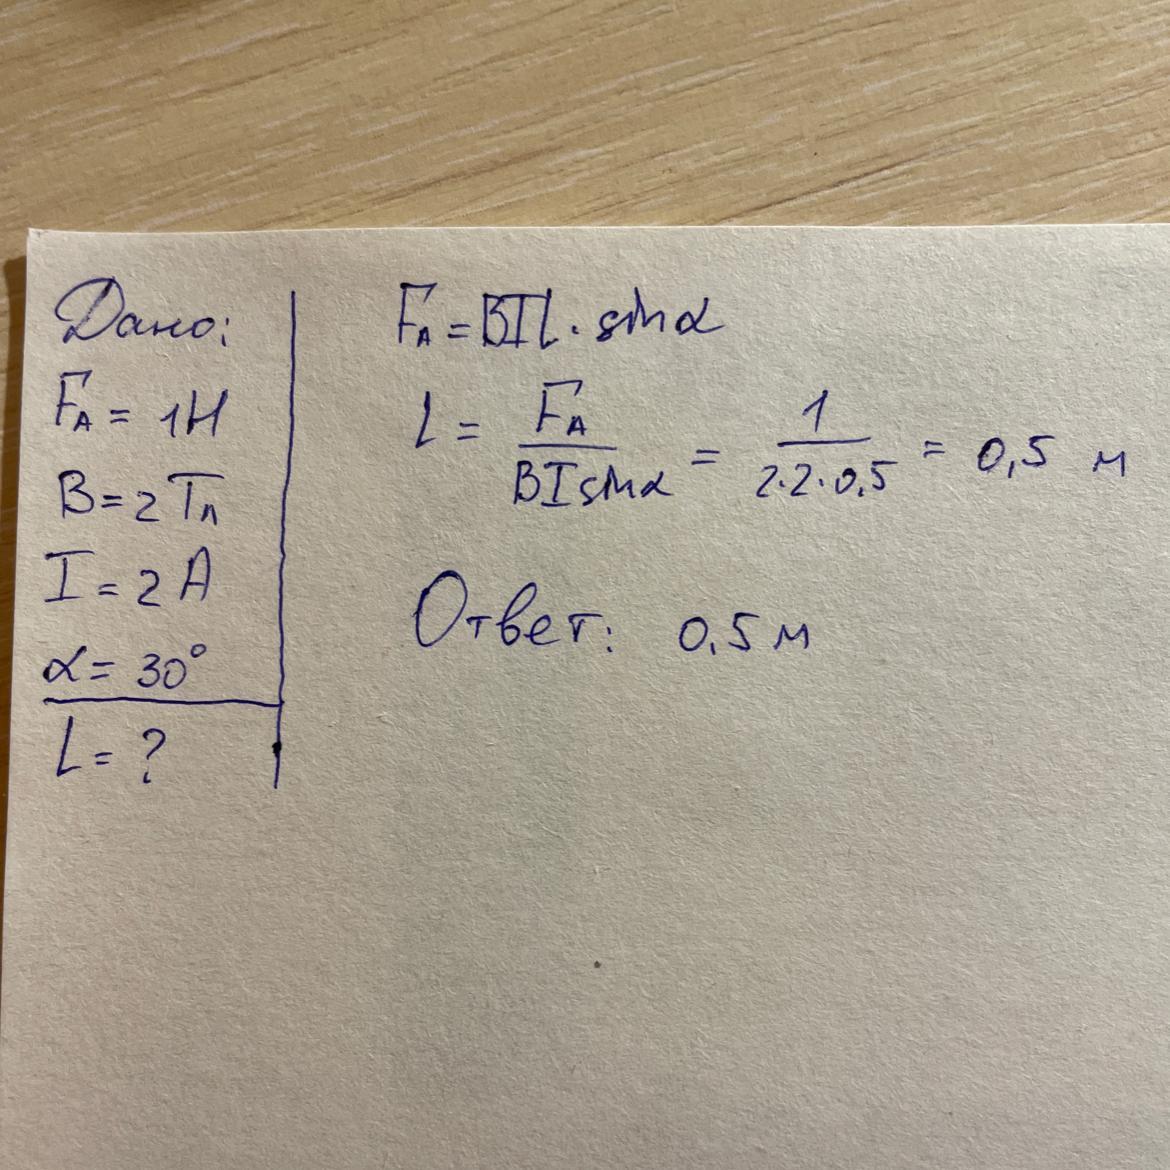 Дано:
F_A = 1Н
B = 2 Тл
I = 2 А
α = 30°
L = ?
F_A = BIL · sinα
L = F_A / BI sinα = 1 / 2·2·0,5 = 0,5 м
Ответ: 0,5 м